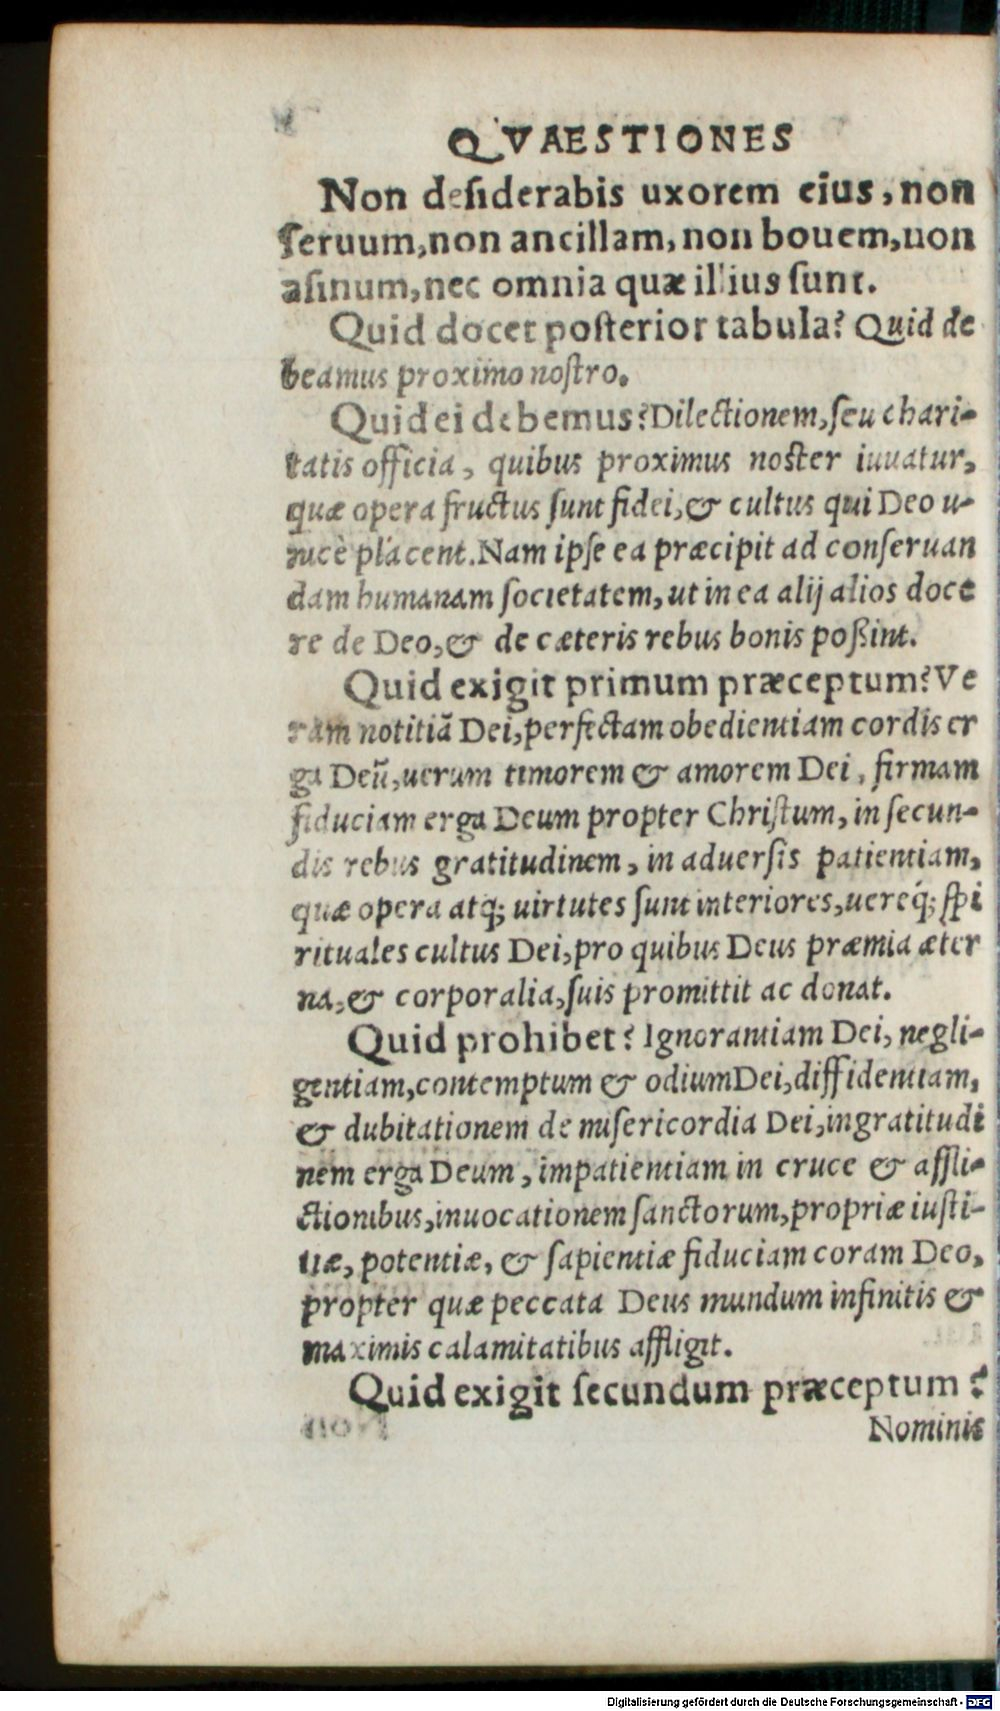 QVAESTIONES
Non deſiderabis uxorem eius, non
ſeruum, non ancillam, non bouem, non
aſinum, nec omnia quæ illius ſunt.
Quid docet poſterior tabula? Quid de
beamus proximo noſtro.
Quid ei debemus? Dilectionem, ſeu chari-
tatis officia, quibus proximus noſter iuuatur,
quæ opera fructus ſunt fidei, & cultus qui Deo u-
nicè placent. Nam ipſe ea præcipit ad conſeruan
dam humanam ſocietatem, ut in ea alij alios doce
re de Deo, & de cæteris rebus bonis poßint.
Quid exigit primum præceptum? Ve
ram notitiā Dei, perfectam obedientiam cordis er
ga Deū, uerum timorem & amorem Dei, firmam
fiduciam erga Deum propter Chriſtum, in ſecun-
dis rebus gratitudinem, in aduerſis patientiam,
quæ opera atq́; uirtutes ſunt interiores, uereq́; ſpi
rituales cultus Dei, pro quibus Deus præmia æter
na, & corporalia, ſuis promittit ac donat.
Quid prohibet? Ignorantiam Dei, negli-
gentiam, contemptum & odium Dei, diffidentiam,
& dubitationem de miſericordia Dei, ingratitudi
nem erga Deum, impatientiam in cruce & affli-
ctionibus, inuocationem ſanctorum, propriæ iuſti-
tiæ, potentiæ, & ſapientiæ fiduciam coram Deo,
propter quæ peccata Deus mundum infinitis &
maximis calamitatibus affligit.
Quid exigit ſecundum præceptum?
Nominis
Digitalisierung gefördert durch die Deutsche Forschungsgemeinschaft - DFG